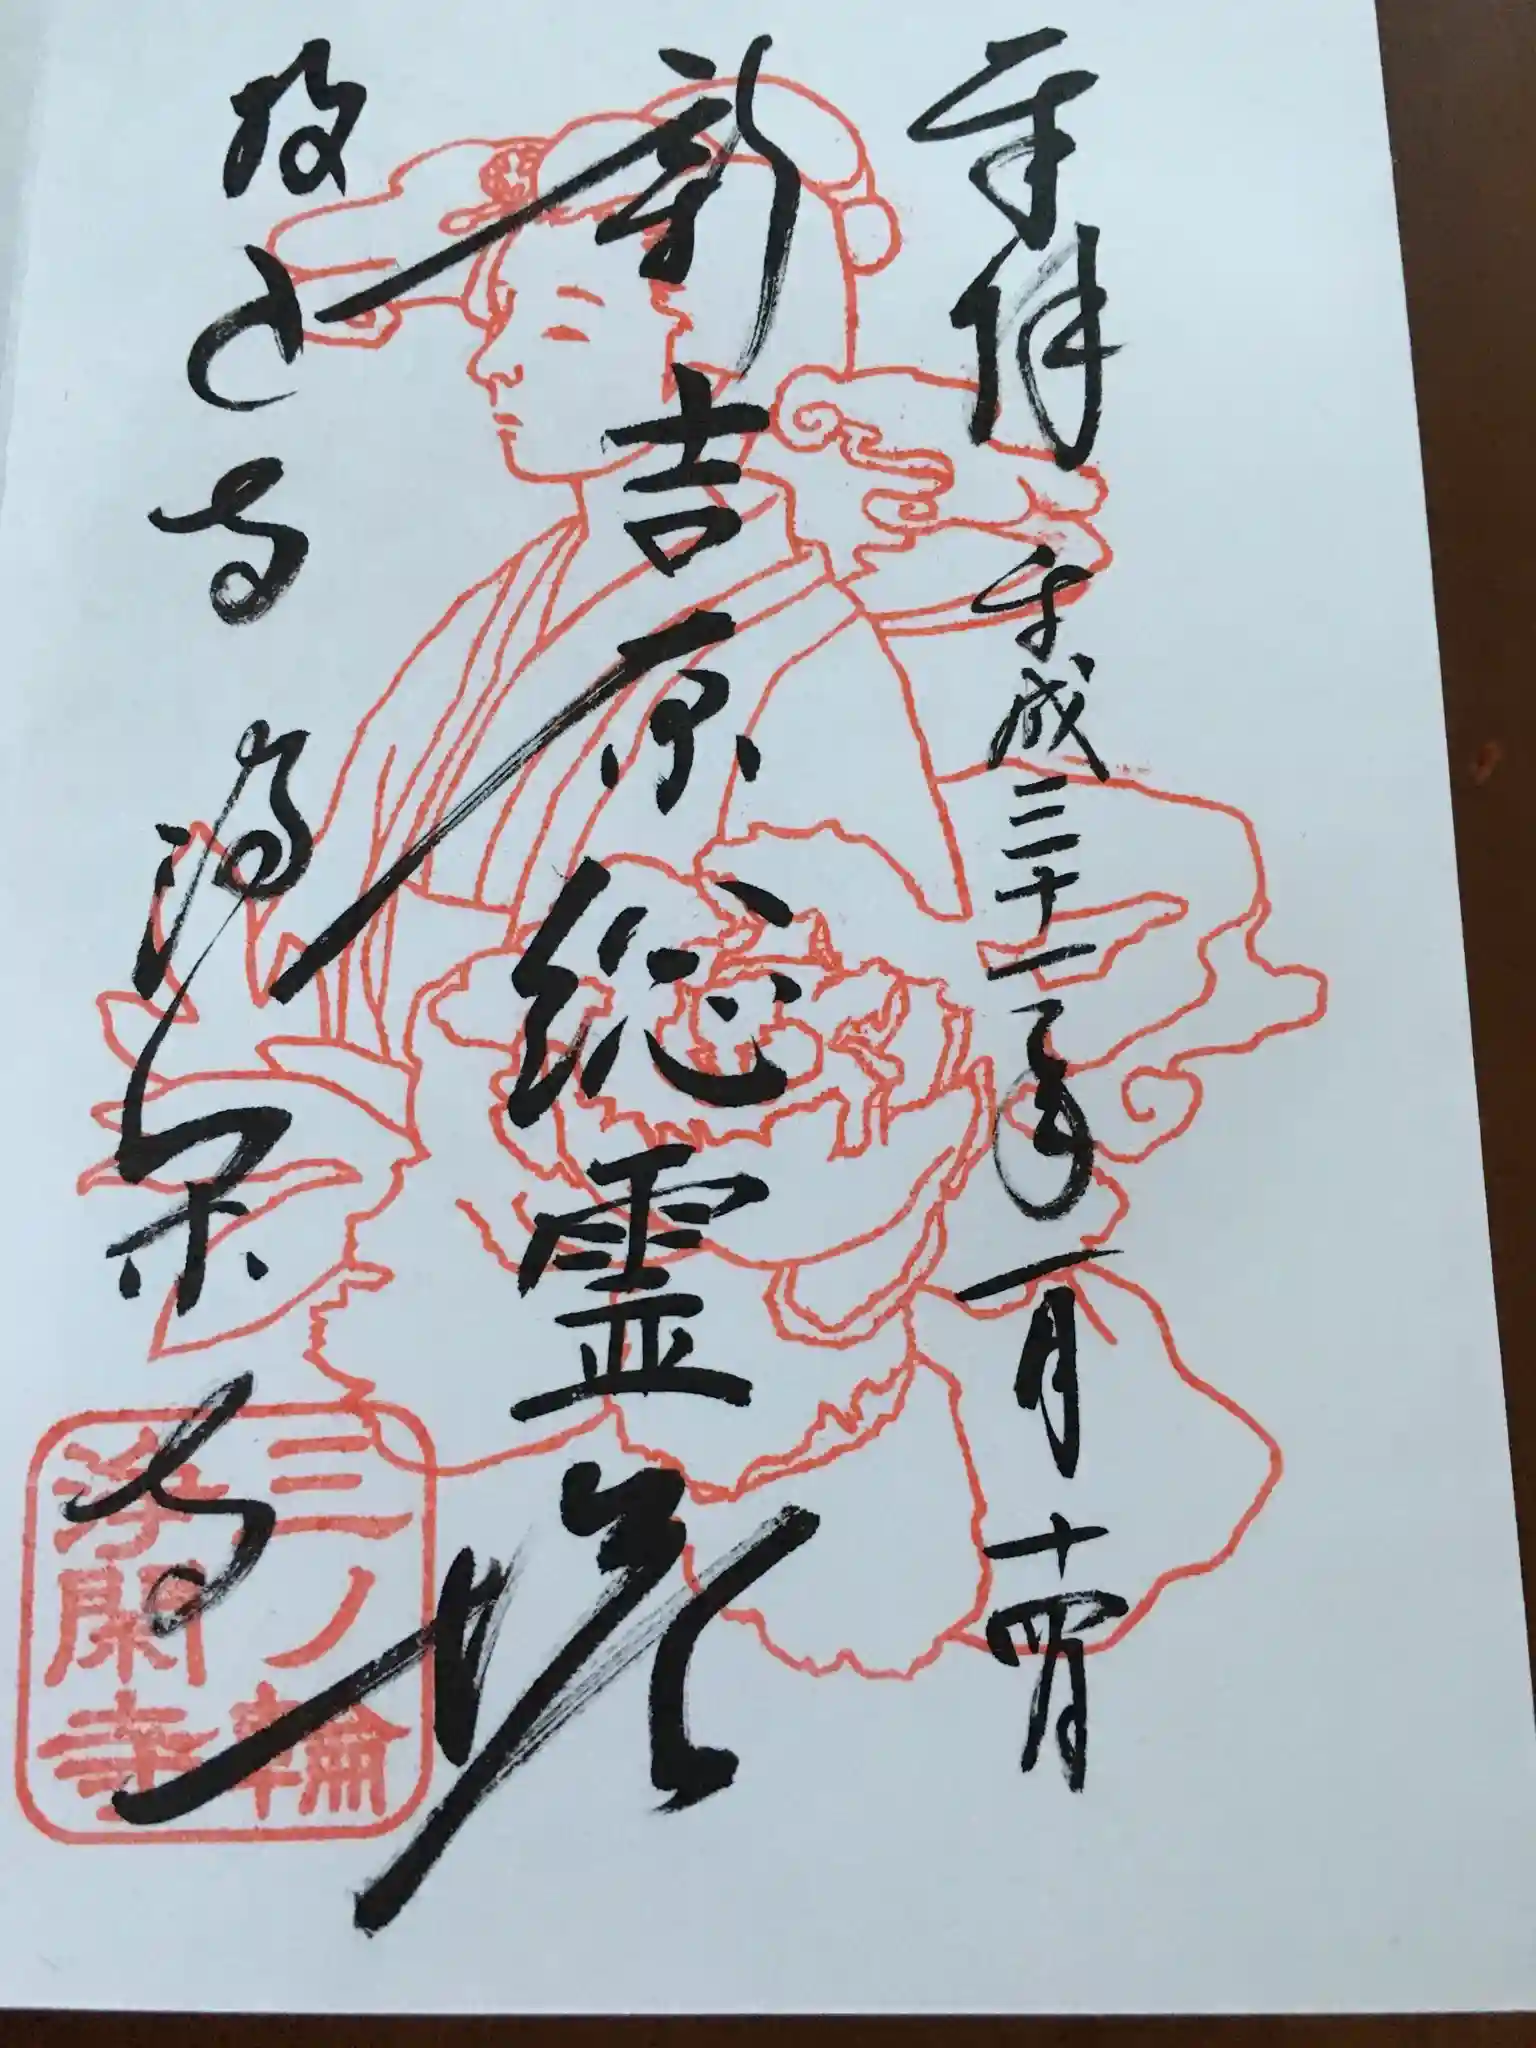 奉拝 平成三十一年一月十四日
新吉原総霊塔
投込寺 浄閑寺
三ノ輪
浄閑寺